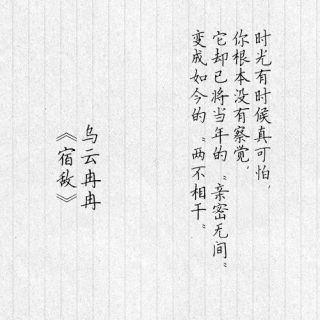 时光有时候真可怕，
你根本没有察觉，
它却已将当年的“亲密无间”
变成如今的“两不相干”
乌云冉冉
《宿敌》